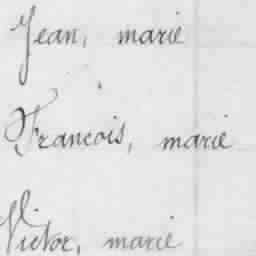 Jean, marie
Francois, marie
Victor, marie